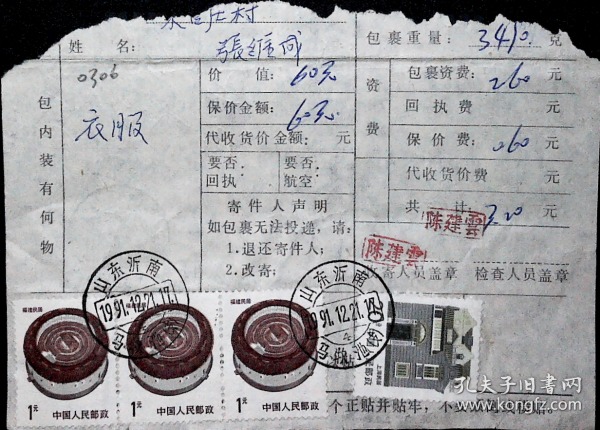 庄村
姓 名： 張维成 包裹重量：3410 克
0306 价 值：60元 资费 包裹资费：2.60 元
包内装有何物 衣服 保价金额：60元 回执费 元
代收货价金额： 元 保价费：.60 元
要否回执 要否航空 代收货价费 元
寄件人声明 共 计：3.20 元
如包裹无法投递，请： 陈建雲 陈建雲
1.退还寄件人；
2.改寄： 收寄人员盖章 检查人员盖章
山东沂南 山东沂南
1991.12.21.17 1991.12.21.17
福建民居 福建民居 福建民居
1元 1元 1元 20
中国人民邮政 中国人民邮政 中国人民邮政 上海民居
个正贴并贴牢，不
孔夫子旧书网
www.kongfz.com